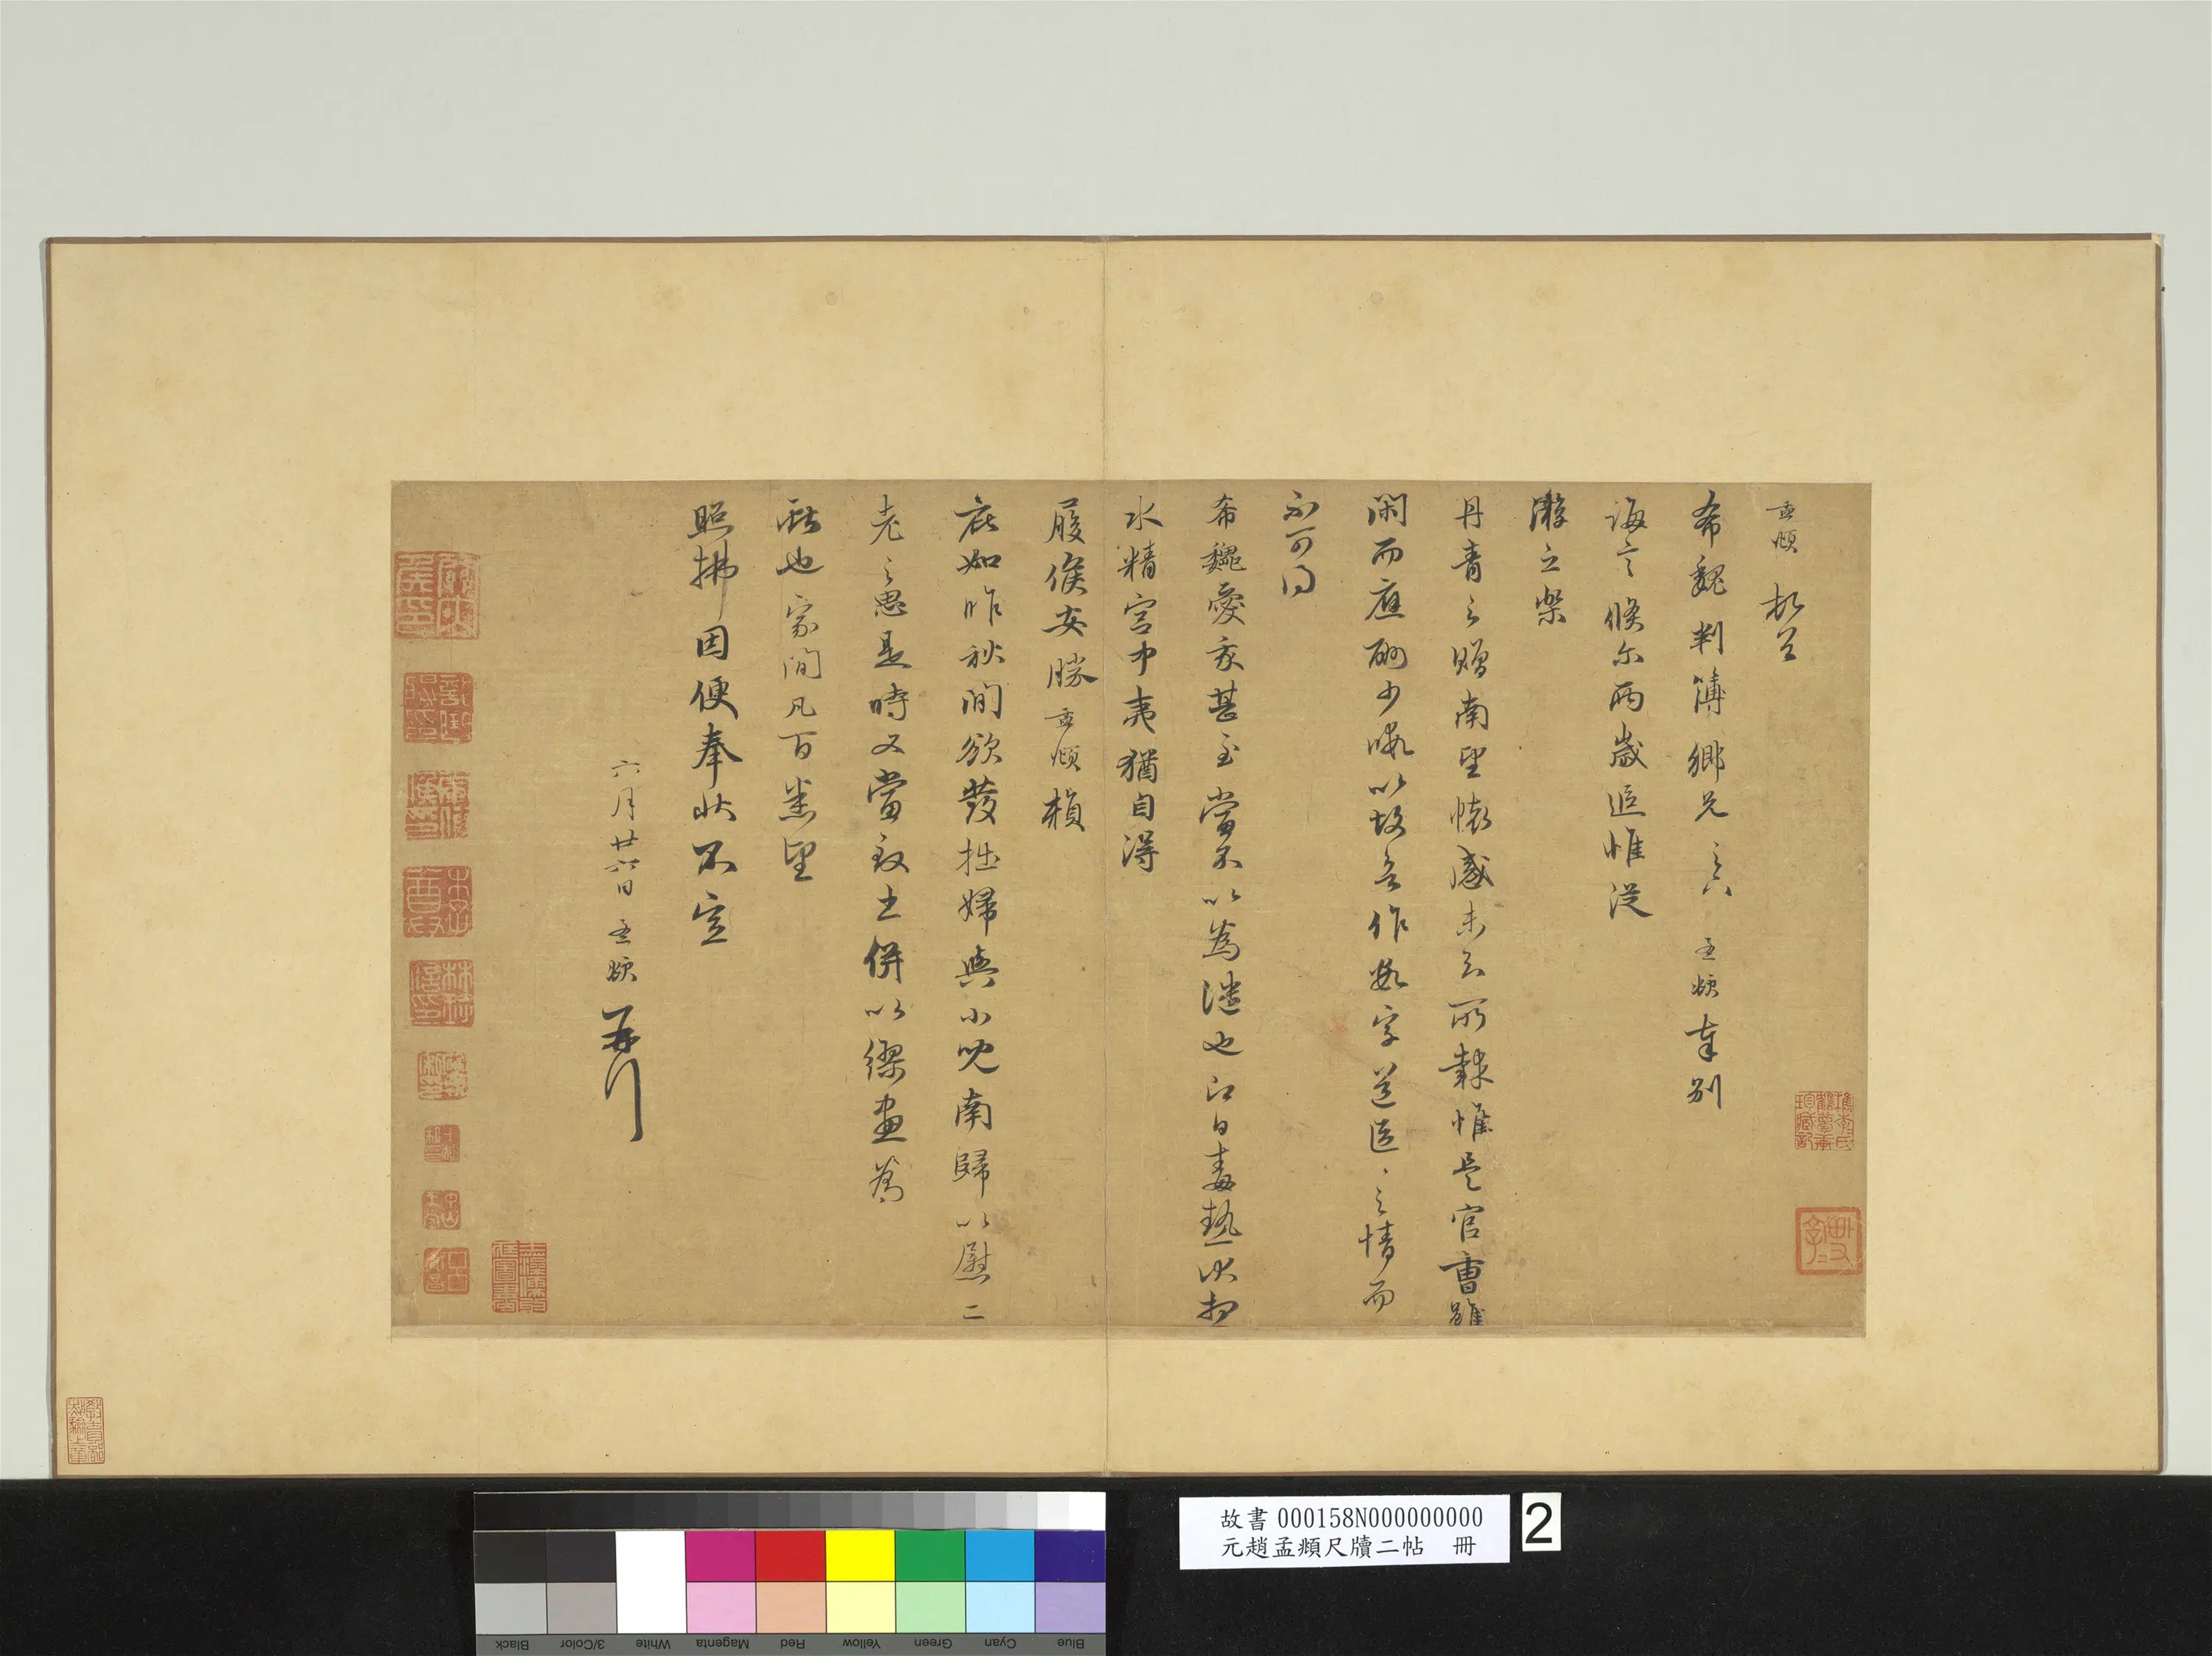 孟頫 拜呈
希魏判簿鄉兄足下 孟頫奉別
誨言倏尔兩歲追惟從
游之樂
丹青之贈南望懷感未知所報惟是官曹雖
閑而應酬少暇以故欲作數字道區〻之情而
不可得
希魏愛我甚至當不以為譴也即日毒熱伏想
水精宮中夷猶自得
履候安勝孟頫賴
庇如昨秋間欲發拙婦與小兒南歸以慰二
老之思是時又當致土併以繆畫為
獻也家間凡百悉望
照拂因便奉狀不宣
六月廿六日 孟頫 再拜
故書 000158N000000000
元趙孟頫尺牘二帖 冊
2
Black
3/Color
White
Magenta
Red
Yellow
Green
Cyan
Blue